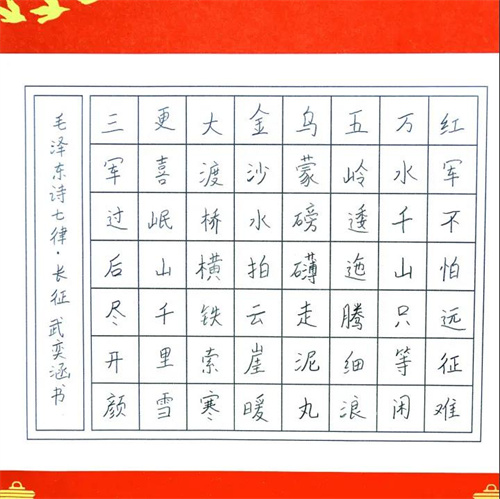 红军不怕远征难
万水千山只等闲
五岭逶迤腾细浪
乌蒙磅礴走泥丸
金沙水拍云崖暖
大渡桥横铁索寒
更喜岷山千里雪
三军过后尽开颜
毛泽东诗七律·长征 武奕涵书